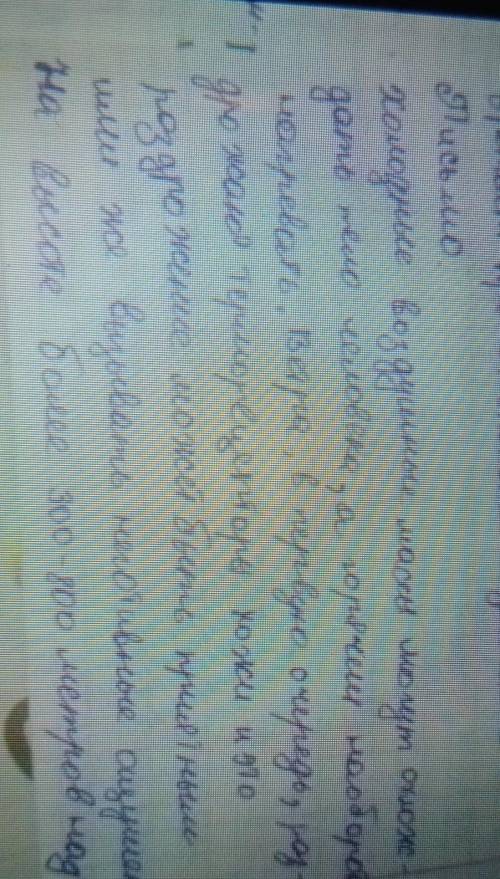 Письмо.
холодные воздушные массы могут охлаж-
дать тело человека, а горячии наоборот
нагревать. Ветра, в первую очередь, раз-
дрожают терморецепторы кожи и это
роздрожение может быть приятным
или же вызывать негативные ощущен
На высоте более 300-800 метров над